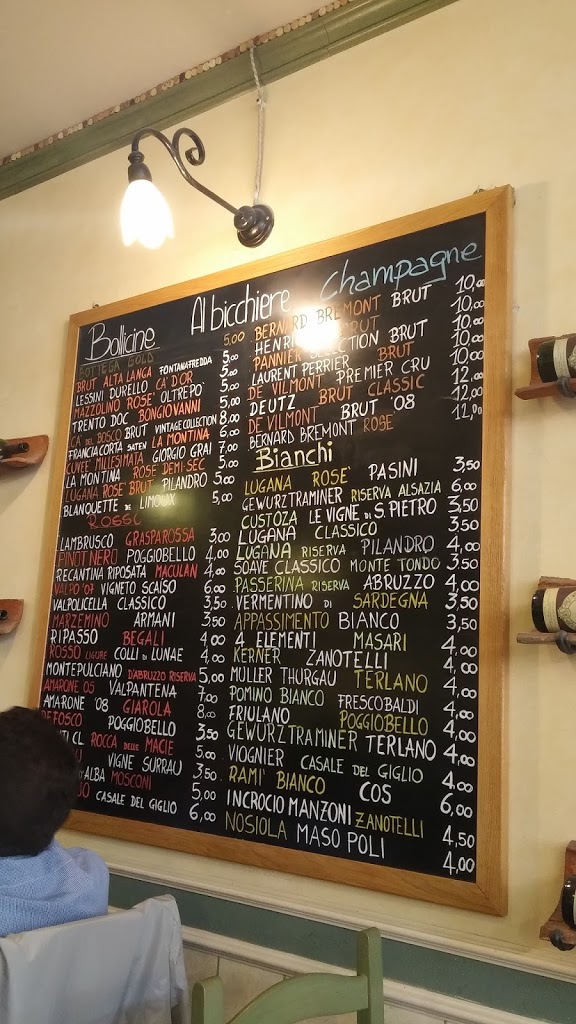 Al bicchiere
Bollicine
BOTTEGA GOLD 5,00
BRUT ALTA LANGA FONTANAFREDDA 5,00
LESSINI DURELLO CA' D'OR 5,00
MAZZOLINO ROSE' OLTREPO' 5,00
TRENTO DOC BONGIOVANNI 5,00
CA' DEL BOSCO BRUT VINTAGE COLLECTION 8,00
FRANCIACORTA SATEN LA MONTINA 6,00
CUVEE MILLESIMATA GIORGIO GRAI 7,00
LA MONTINA ROSE DEMI-SEC 5,00
LUGANA ROSE' BRUT PILANDRO 5,00
BLANQUETTE DE LIMOUX 5,00
ROSSI
LAMBRUSCO GRASPAROSSA 3,00
PINOT NERO POGGIOBELLO 4,00
RECANTINA RIPOSATA MACULAN 4,00
VALPO '07 VIGNETO SCAISO 6,00
VALPOLICELLA CLASSICO 3,50
MARZEMINO ARMANI 3,50
RIPASSO BEGALI 4,00
ROSSO LIGURE COLLI DI LUNAE 4,00
MONTEPULCIANO D'ABRUZZO RISERVA 5,00
AMARONE 05 VALPANTENA 7,00
AMARONE '08 GIAROLA 8,00
POGGIOBELLO 3,50
CL ROCCA DELLE MACIE
VIGNE SURRAU
ALBA MOSCONI 5,00
CASALE DEL GIGLIO 6,00
Champagne
BERNARD BREMONT BRUT 10,00
HENRI 10,00
PANNIER SELECTION BRUT 10,00
LAURENT PERRIER BRUT 10,00
DE VILMONT PREMIER CRU 10,00
DEUTZ BRUT CLASSIC 12,00
DE VILMONT BRUT '08 12,00
BERNARD BREMONT ROSE' 12,00
Bianchi
LUGANA ROSE' PASINI 3,50
GEWURZTRAMINER RISERVA ALSAZIA 6,00
CUSTOZA LE VIGNE DI S. PIETRO 3,50
LUGANA CLASSICO 3,50
LUGANA RISERVA PILANDRO 4,00
SOAVE CLASSICO MONTE TONDO 3,50
PASSERINA RISERVA ABRUZZO 4,00
VERMENTINO DI SARDEGNA 3,50
APPASSIMENTO BIANCO 3,50
4 ELEMENTI MASARI 4,00
KERNER ZANOTELLI 4,00
MULLER THURGAU TERLANO 4,00
POMINO BIANCO FRESCOBALDI 4,00
FRIULANO POGGIOBELLO 4,00
GEWURZTRAMINER TERLANO 4,00
VIOGNIER CASALE DEL GIGLIO 4,00
RAMI' BIANCO COS 6,00
INCROCIO MANZONI ZANOTELLI 4,50
NOSIOLA MASO POLI 4,00